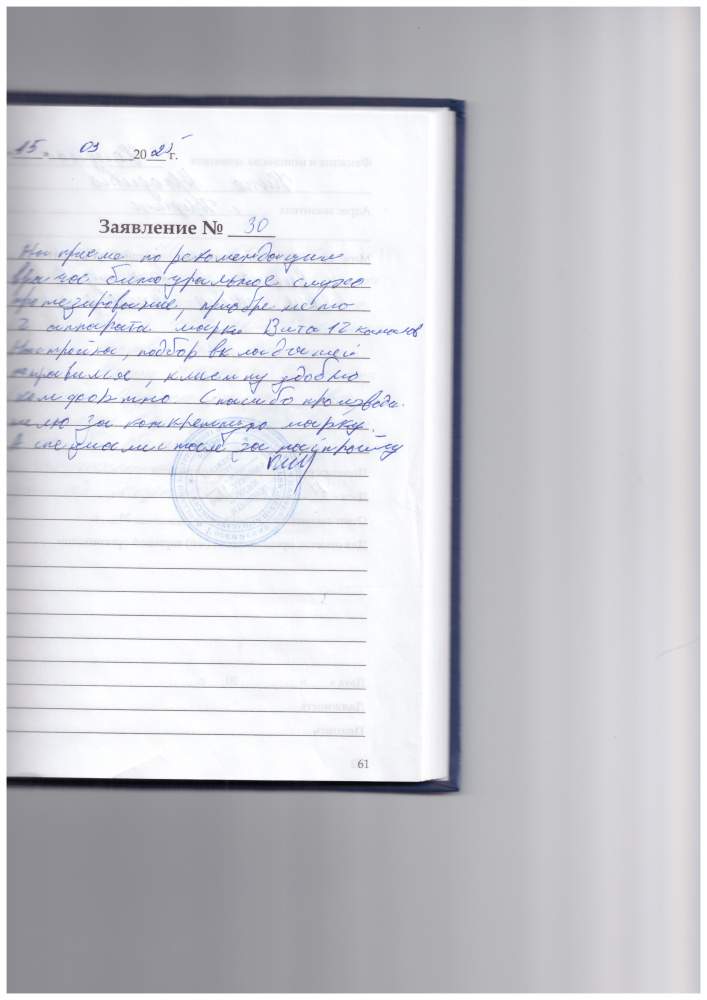 15 03 2025 г.
Заявление № 30
На приеме по рекомендации
врача бинауральное слухо
протезирование, приобретено
2 аппарата марки Вита 12 каналов
Настройка, подбор вкладышей
справился, клиенту удобно
комфортно Спасибо производи-
телю за конкретную марку.
и специалистам за настройку
61